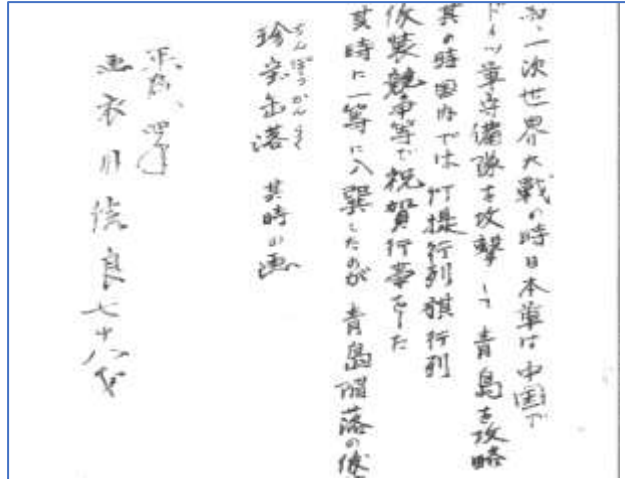 第一次世界大戦の時日本軍は中国で
ドイツ軍守備隊を攻撃して青島を攻略
其の時国内では灯提行列旗行列
仮装競争等で祝賀行事をした
其時に一等に入選したのが青島陥落の
ちんぼつかんらく
珍宝缶落 其時の画
平成
画 良七十八才